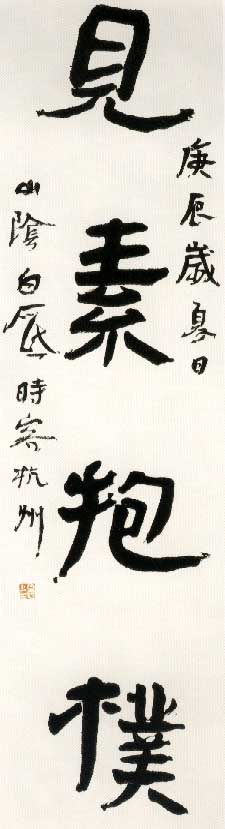 庚辰歲夏日
見素抱樸
山陰白砥時客杭州